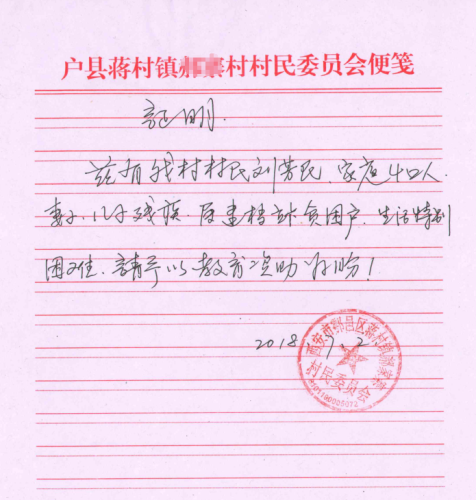 户县蒋村镇村村民委员会便笺
证明.
兹有我村村民刘芳民.家庭4口人.
妻子、儿子残疾.属建档立卡贫困户.生活特别
困难.请予以教育资助为盼!
2018.9.2
西安市鄠邑区蒋村镇
村民委员会